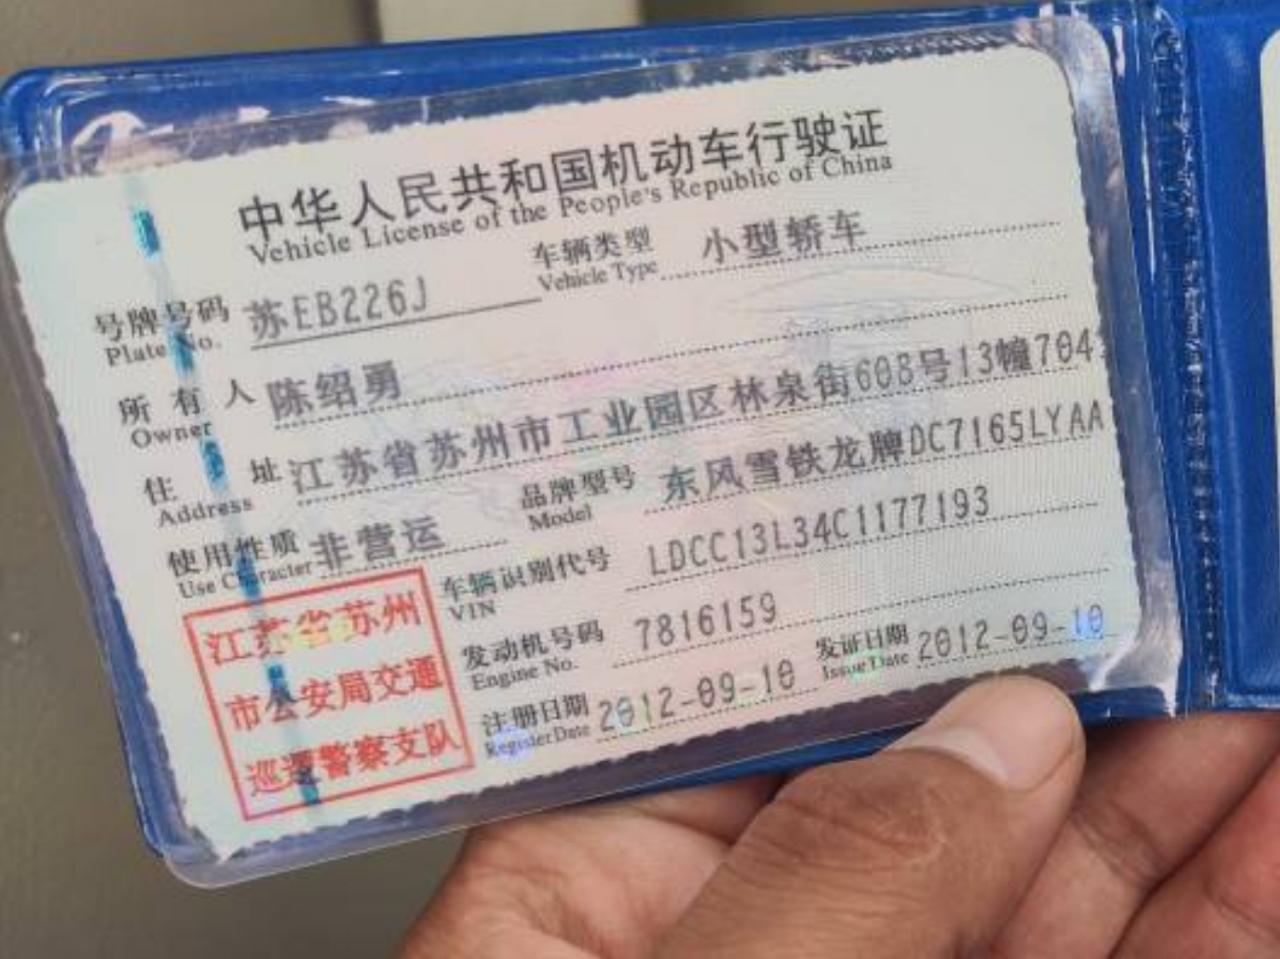 中华人民共和国机动车行驶证
Vehicle License of the People's Republic of China
号牌号码 苏EB226J 车辆类型 小型轿车
Plate No. Vehicle Type
所有人 陈绍勇
Owner
住址 江苏省苏州市工业园区林泉街608号13幢704
Address
使用性质 非营运 品牌型号 东风雪铁龙牌DC7165LYAA
Use Character Model
车辆识别代号 LDCC13L34C1177193
VIN
发动机号码 7816159 发证日期 2012-09-10
Engine No. Issue Date
注册日期 2012-09-10
Register Date
江苏省苏州
市公安局交通
巡逻警察支队